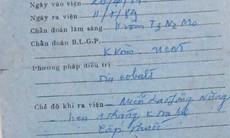 Ngày vào viện
Ngày ra viện 11/7/89
Chẩn đoán lâm sàng K vòm T3 N2 Mo
Chẩn đoán Đ.L.G.P.
K vòm
Phương pháp điều trị
Tia cobalt
Chế độ khi ra viện Miễn lao động nặng
hẹn 1 tháng K tra lại
Cấp thuốc